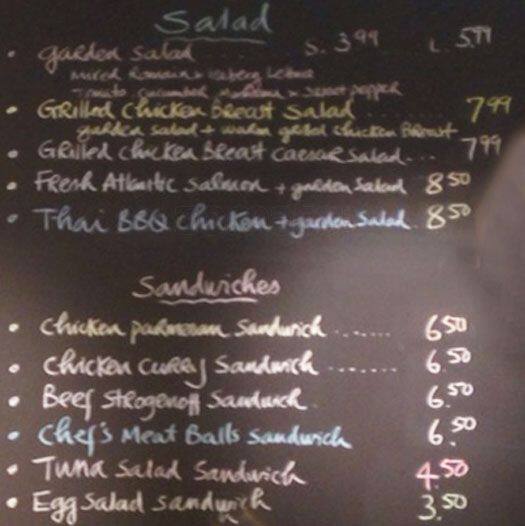 Salad
• garden salad S. 3.99 L. 5.99
Mixed Romain + Iceberg Lettuce
Tomato cucumber + sweet pepper
• Grilled Chicken Breast Salad 7 99
garden salad + warm grilled chicken Breast
• Grilled chicken Breast caesar salad... 7 99
• Fresh Atlantic salmon + garden salad 8 50
• Thai BBQ chicken + garden salad. 8 50
Sandwiches
• chicken parmesan sandwich ....... 6 50
• chicken curry sandwich ....... 6.50
• Beef strogenoff sandwich 6.50
• Chef's Meat Balls sandwich 6.50
• Tuna Salad Sandwich 4.50
• Egg Salad sandwich 3.50